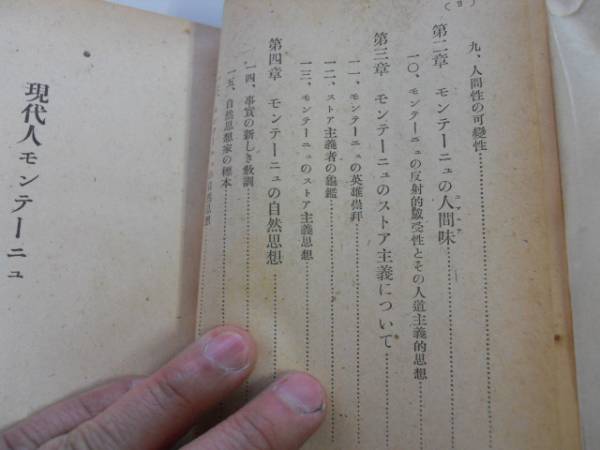 九、人間性の可變性
第二章 モンテーニュの人間味
一〇、モンテーニュの反射的感受性とその人道主義的思想
第三章 モンテーニュのストア主義について
一一、モンテーニュの英雄崇拜
一二、ストア主義者の龜鑑
一三、モンテーニュのストア主義思想
第四章 モンテーニュの自然思想
一四、事實の新しき敎訓
一五、自然思想家の標本
現代人モンテーニュ